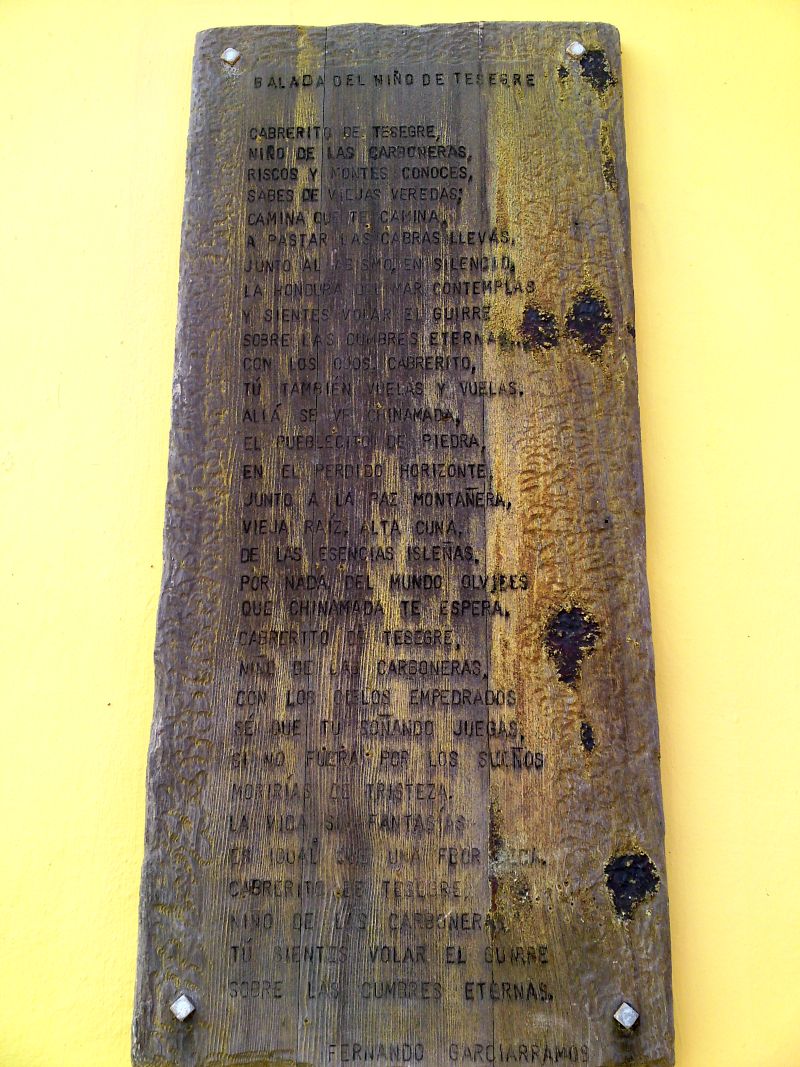 BALADA DEL NIÑO DE TESEGRE
CABRERITO DE TESEGRE,
NIÑO DE LAS CARBONERAS,
RISCOS Y MONTES CONOCES,
SABES DE VIEJAS VEREDAS;
CAMINA QUE TE CAMINA,
A PASTAR LAS CABRAS LLEVAS,
JUNTO AL ABISMO, EN SILENCIO,
LA HONDURA DEL MAR CONTEMPLAS
Y SIENTES VOLAR EL GUIRRE
SOBRE LAS CUMBRES ETERNAS..
CON LOS OJOS, CABRERITO,
TÚ TAMBIÉN VUELAS Y VUELAS.
ALLÁ SE VE CHINAMADA,
EL PUEBLECITO DE PIEDRA,
EN EL PERDIDO HORIZONTE,
JUNTO A LA PAZ MONTAÑERA,
VIEJA RAÍZ, ALTA CUNA,
DE LAS ESENCIAS ISLEÑAS.
POR NADA DEL MUNDO OLVIDES
QUE CHINAMADA TE ESPERA,
CABRERITO DE TESEGRE,
NIÑO DE LAS CARBONERAS,
CON LOS CIELOS EMPEDRADOS
SÉ QUE TU SOÑANDO JUEGAS,
SI NO FUERA POR LOS SUEÑOS
MORIRÍAS DE TRISTEZA.
LA VIDA SIN FANTASÍAS
ES IGUAL QUE UNA FLOR SECA.
CABRERITO DE TESEGRE,
NIÑO DE LAS CARBONERAS
TÚ SIENTES VOLAR EL GUIRRE
SOBRE LAS CUMBRES ETERNAS.
FERNANDO GARCIARRAMOS